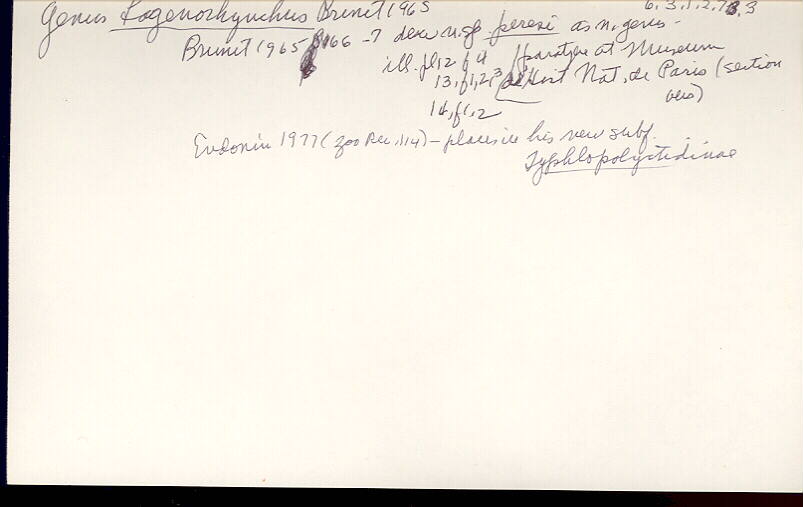 Genus Rogenorhynchus Brunet 1965 6.3.1.2.73.3
Brunet 1965 166-7 descr n.sp. perezi as n. genus -
ill. pl 12 f 4 paratype at Museum
13, f1,2,3 d'Hist Nat. de Paris (section
14, f1,2 vers)
Evdonin 1977 (Zoo Rec. 114) - places in his new subf.
Typhlopolycystidinae